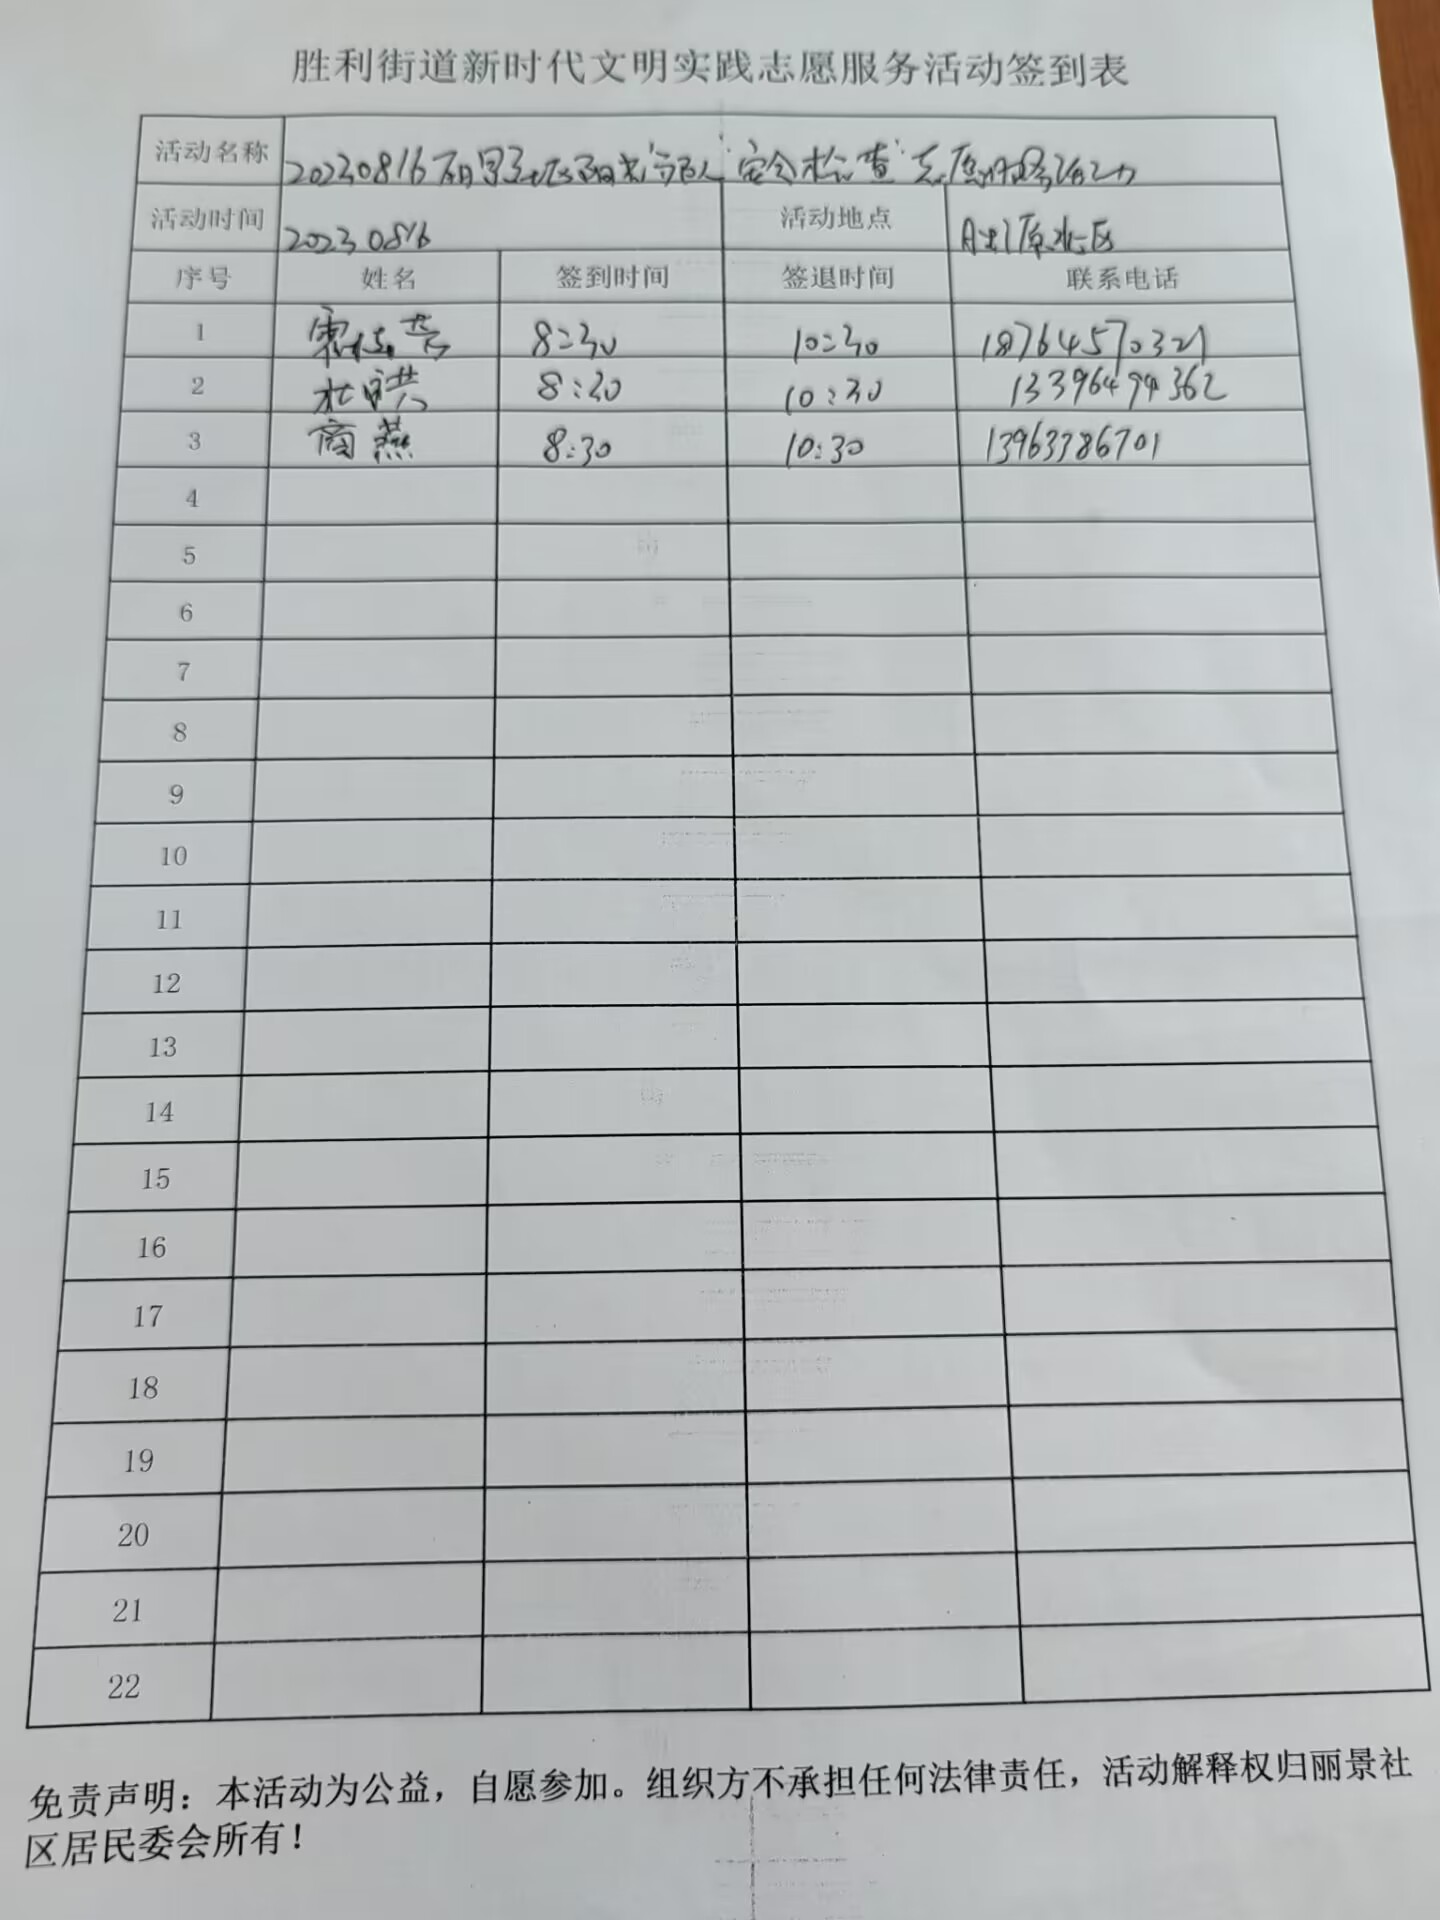 胜利街道新时代文明实践志愿服务活动签到表
活动名称 20230816 "安全检查"志愿服务活动
活动时间 20230816 活动地点
序号 姓名 签到时间 签退时间 联系电话
1 8:30 10:30 18764570321
2 8:30 10:30 13396494362
3 商燕 8:30 10:30 13963386701
4
5
6
7
8
9
10
11
12
13
14
15
16
17
18
19
20
21
22
免责声明：本活动为公益，自愿参加。组织方不承担任何法律责任，活动解释权归丽景社
区居民委会所有！